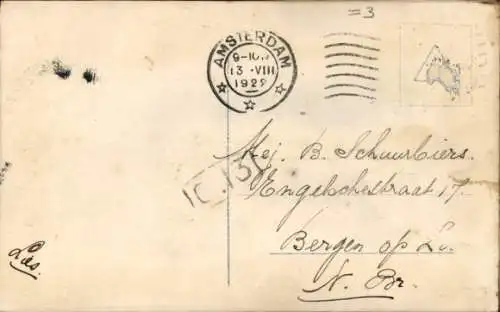 =3
AMSTERDAM
13.VIII
1922
C.I3I
Mej. B. Schuurbiers.
Engelschestraat 17.
Bergen op Z.
N. Br.